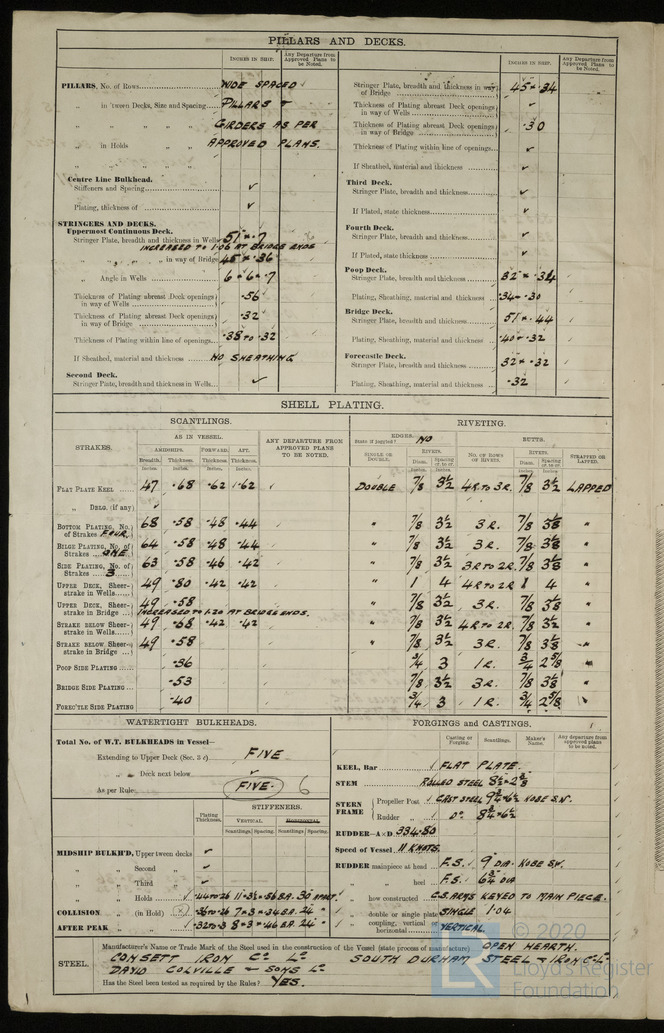 PILLARS AND DECKS.
INCHES IN SHIP.
Any Departure from Approved Plans to be Noted.
PILLARS, No. of Rows WIDE SPACED
„ in 'tween Decks, Size and Spacing PILLARS &
„ „ „ „ GIRDERS AS PER
„ in Holds APPROVED PLANS.
„ „ „ „
Centre Line Bulkhead.
Stiffeners and Spacing ✓
Plating, thickness of ✓
STRINGERS AND DECKS.
Uppermost Continuous Deck.
Stringer Plate, breadth and thickness in Wells 51 × .7
INCREASED TO 1.06 AT BRIDGE ENDS
„ „ „ „ in way of Bridge 45 × .36
„ Angle in Wells 6 × 6 × .7
Thickness of Plating abreast Deck openings in way of Wells .56
Thickness of Plating abreast Deck openings in way of Bridge .32
Thickness of Plating within line of openings .38 TO .32
If Sheathed, material and thickness NO SHEATHING
Second Deck.
Stringer Plate, breadth and thickness in Wells ✓
INCHES IN SHIP.
Any Departure from Approved Plans to be Noted.
Stringer Plate, breadth and thickness in way of Bridge 45 × .34
Thickness of Plating abreast Deck openings in way of Wells ✓
Thickness of Plating abreast Deck openings in way of Bridge .30
Thickness of Plating within line of openings ✓
If Sheathed, material and thickness ✓
Third Deck.
Stringer Plate, breadth and thickness ✓
If Plated, state thickness ✓
Fourth Deck.
Stringer Plate, breadth and thickness ✓
If Plated, state thickness ✓
Poop Deck.
Stringer Plate, breadth and thickness 32 × .34
Plating, Sheathing, material and thickness .34 - .30
Bridge Deck.
Stringer Plate, breadth and thickness 51 × .44
Plating, Sheathing, material and thickness .40 - .32
Forecastle Deck.
Stringer Plate, breadth and thickness 32 × .32
Plating, Sheathing, material and thickness .32
SHELL PLATING.
SCANTLINGS.
RIVETING.
STRAKES.
AS IN VESSEL.
AMIDSHIPS. FORWARD. AFT.
Breadth. Thickness. Thickness. Thickness.
Inches. Inches. Inches. Inches.
ANY DEPARTURE FROM APPROVED PLANS TO BE NOTED.
EDGES.
State if joggled? NO
SINGLE OR DOUBLE.
RIVETS.
Diam. Spacing cr. to cr.
Inches Inches
BUTTS.
No. OF ROWS OF RIVETS.
RIVETS.
Diam. Spacing cr. to cr.
Inches Inches
STRAPPED OR LAPPED.
FLAT PLATE KEEL 47 .68 .62 .62 DOUBLE 7/8 3½ 4R TO 3R. 7/8 3½ LAPPED
„ DBLG. (if any) ✓
BOTTOM PLATING, No. of Strakes FOUR 68 .58 .48 .44 " 7/8 3½ 3R. 7/8 3⅛ "
BILGE PLATING, No. of Strakes ONE 64 .58 .48 .44 " 7/8 3½ 3R. 7/8 3⅛ "
SIDE PLATING, No. of Strakes 3 63 .58 .46 .42 " 7/8 3½ 3R TO 2R. 7/8 3⅛ "
UPPER DECK, Sheer-strake in Wells 49 .80 .42 .42 " 1 4 4R TO 2R 1 4 "
UPPER DECK, Sheer-strake in Bridge 49 .58 " 7/8 3½ 3R. 7/8 3⅛ "
INCREASED TO 1.20 AT BRIDGE ENDS.
STRAKE BELOW SHEER-strake in Wells 49 .68 .42 .42 " 7/8 3½ 4R TO 2R. 7/8 3½ "
STRAKE BELOW SHEER-strake in Bridge 49 .58 " 7/8 3½ 3R. 7/8 3⅛ "
POOP SIDE PLATING .36 3/4 3 1R. 3/4 2⅝ "
BRIDGE SIDE PLATING .53 7/8 3½ 3R. 7/8 3⅛ "
FORECTLE SIDE PLATING .40 3/4 3 1R. 3/4 2⅝ "
WATERTIGHT BULKHEADS.
Total No. of W.T. BULKHEADS in Vessel—
Extending to Upper Deck (Sec. 3 c) FIVE
„ „ Deck next below ✓
As per Rule FIVE. 6
Plating Thickness.
STIFFENERS.
VERTICAL HORIZONTAL
Scantlings. Spacing. Scantlings. Spacing.
MIDSHIP BULKH'D, Upper tween decks ✓
„ „ Second „ ✓
„ „ Third „ ✓
„ „ Holds .44 TO .26 11 × 3½ × .56 B.A. 30 APART.
COLLISION „ (in Hold) .36 TO .26 7 × 3 × .34 B.A. 24 "
AFTER PEAK „ „ .32 TO .3 8 × 3 × .46 B.A. 24 "
FORGINGS and CASTINGS.
Casting or Forging. Scantlings. Maker's Name. Any departure from approved plans to be noted.
KEEL, Bar FLAT PLATE.
STEM ROLLED STEEL 8½ × 2⅜
STERN FRAME
Propeller Post CAST STEEL 9¾ × 6½ KOBE S.W.
Rudder „ Do. 8¾ × 6½
RUDDER—A×D 334.50
Speed of Vessel 11 KNOTS.
RUDDER mainpiece at head F.S. 9 DIA. KOBE S.W.
„ „ heel F.S. 6¾ DIA
„ how constructed C.S. ARMS KEYED TO MAIN PIECE.
„ double or single plate SINGLE 1.04
„ coupling, vertical or horizontal VERTICAL.
STEEL.
Manufacturer's Name or Trade Mark of the Steel used in the construction of the Vessel (state process of manufacture) OPEN HEARTH.
CONSETT IRON Co Ld SOUTH DURHAM STEEL & IRON Co Ld
DAVID COLVILLE & SONS Ld
Has the Steel been tested as required by the Rules? YES.
© 2020
LR Lloyd's Register
Foundation